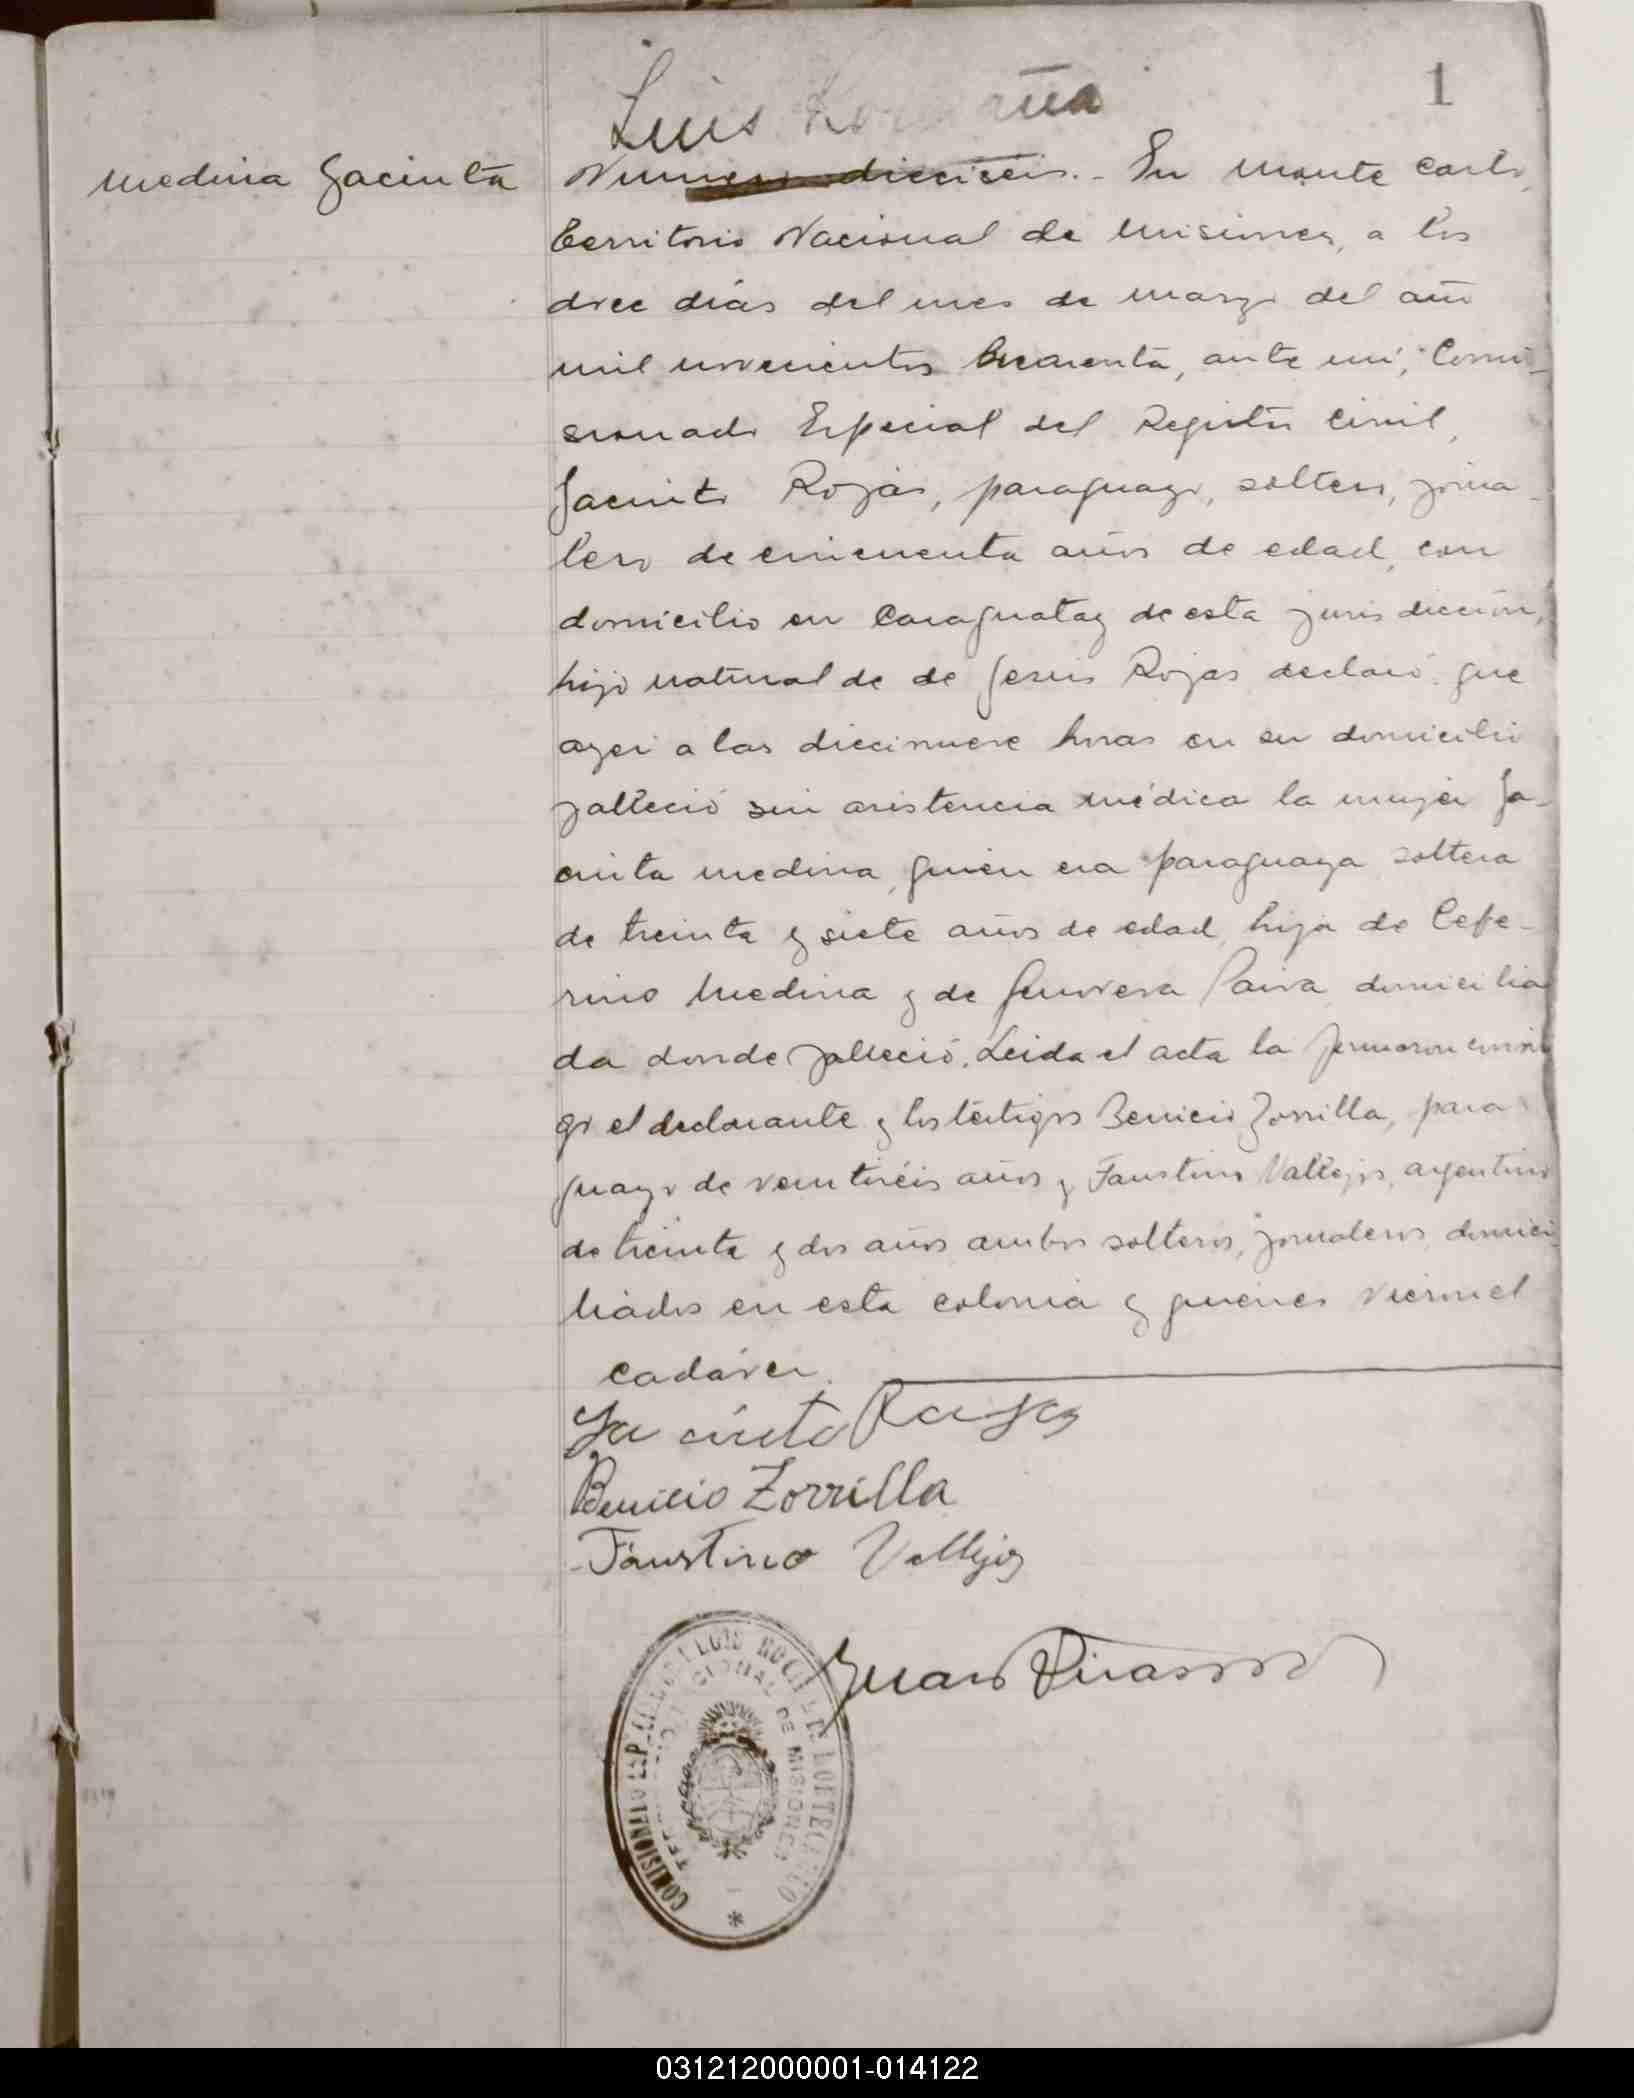 1
Luis
Medina Jacinta
Numero dieciseis.- En Monte Carlo,
Territorio Nacional de Misiones, a los
doce días del mes de marzo del año
mil novecientos cuarenta, ante mí, Comi-
sionado Especial del Registro Civil,
Jacinto Rojas, paraguayo, soltero, jorna-
lero de cincuenta años de edad, con
domicilio en Caraguatay de esta jurisdicción,
hijo natural de de Jesus Rojas declaró: que
ayer a las diecinueve horas en su domicilio
falleció sin asistencia médica la mujer Ja-
cinta Medina, quien era paraguaya soltera
de treinta y siete años de edad, hija de Cefe-
rino Medina y de Genovera Paiva domicilia
da donde falleció. Leida el acta la firmaron conmi
go el declarante y los téstigos Benicio Zorrilla, para
guayo de veintiséis años y Faustino Vallejos, argentino
de treinta y dos años ambos solteros, jornaleros domici
liados en esta colonia y quienes vieron el
cadáver.
Jacinto Rojas
Benicio Zorrilla
Faustino Vallejos
Juan
COMISIONADO ESPECIAL
TERRITORIO NACIONAL DE MISIONES
*
031212000001-014122